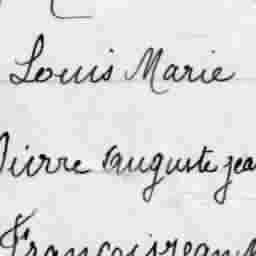 Louis Marie
Pierre auguste jea
François jean